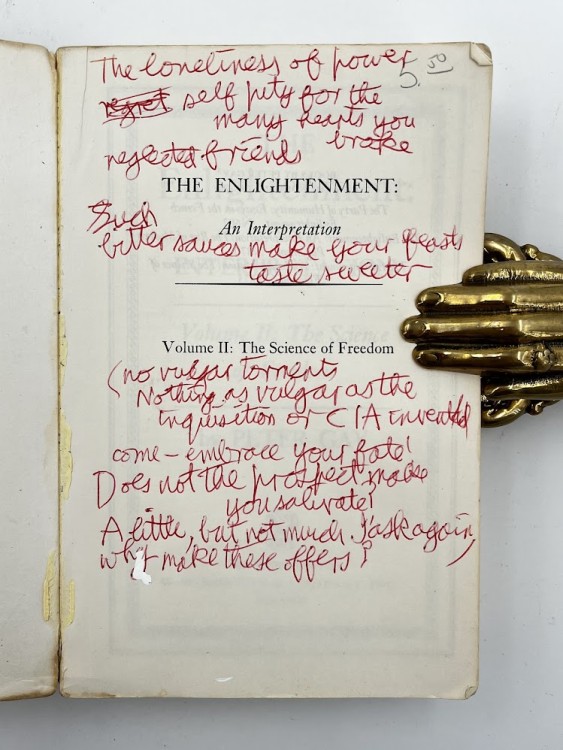 The loneliness of power
5.00
regret self pity for the
many hearts you
brake
neglected friends
THE ENLIGHTENMENT:
Such
An Interpretation
bitter sauces make your feasts
taste sweeter
Volume II: The Science of Freedom
(no vulgar torments
Nothing as vulgar as the
Inquisition or CIA invented
come – embrace your fate!
Does not the prospect make
you salivate!
A little, but not much I ask again,
why make these offers?